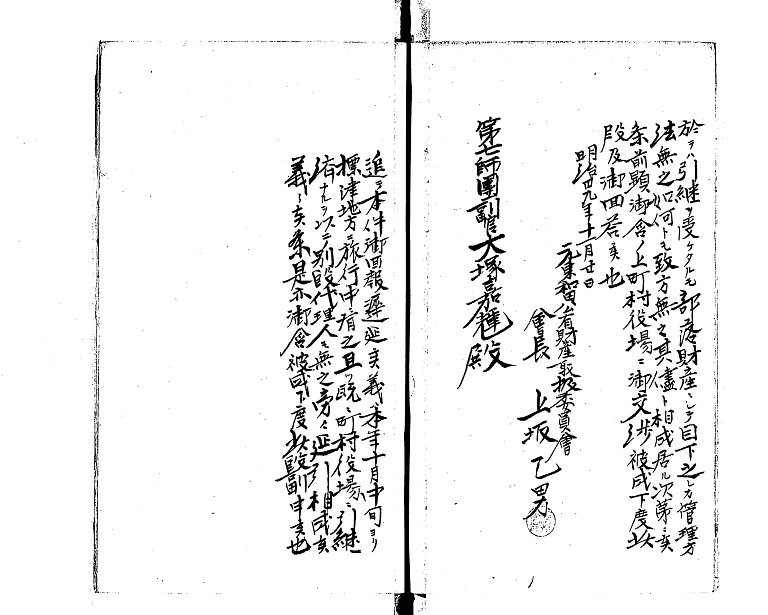 於テハ引継ヲ受ケタルモ部落財産ニシテ目下之レカ管理方
法無之如何トモ致方無之其儘ト相成居ル次第ニ有之候
条前顕御含ノ上町村役場ニ御交渉被成下度此
段及御回答候也
明治廿九年十一月廿日
元集習共有財産取扱委員會
會長 上坂乙男
第七師團副官大塚嘉種殿
追テ本件御回報遅延候義ハ本年十月中旬ヨリ
標津地方ニ旅行中ニ有之且既ニ町村役場ニ引継
済ナルヲ以テ別段代理人モ無之旁々延引相成候
義ニ候条是亦御含被成下度此段副申候也